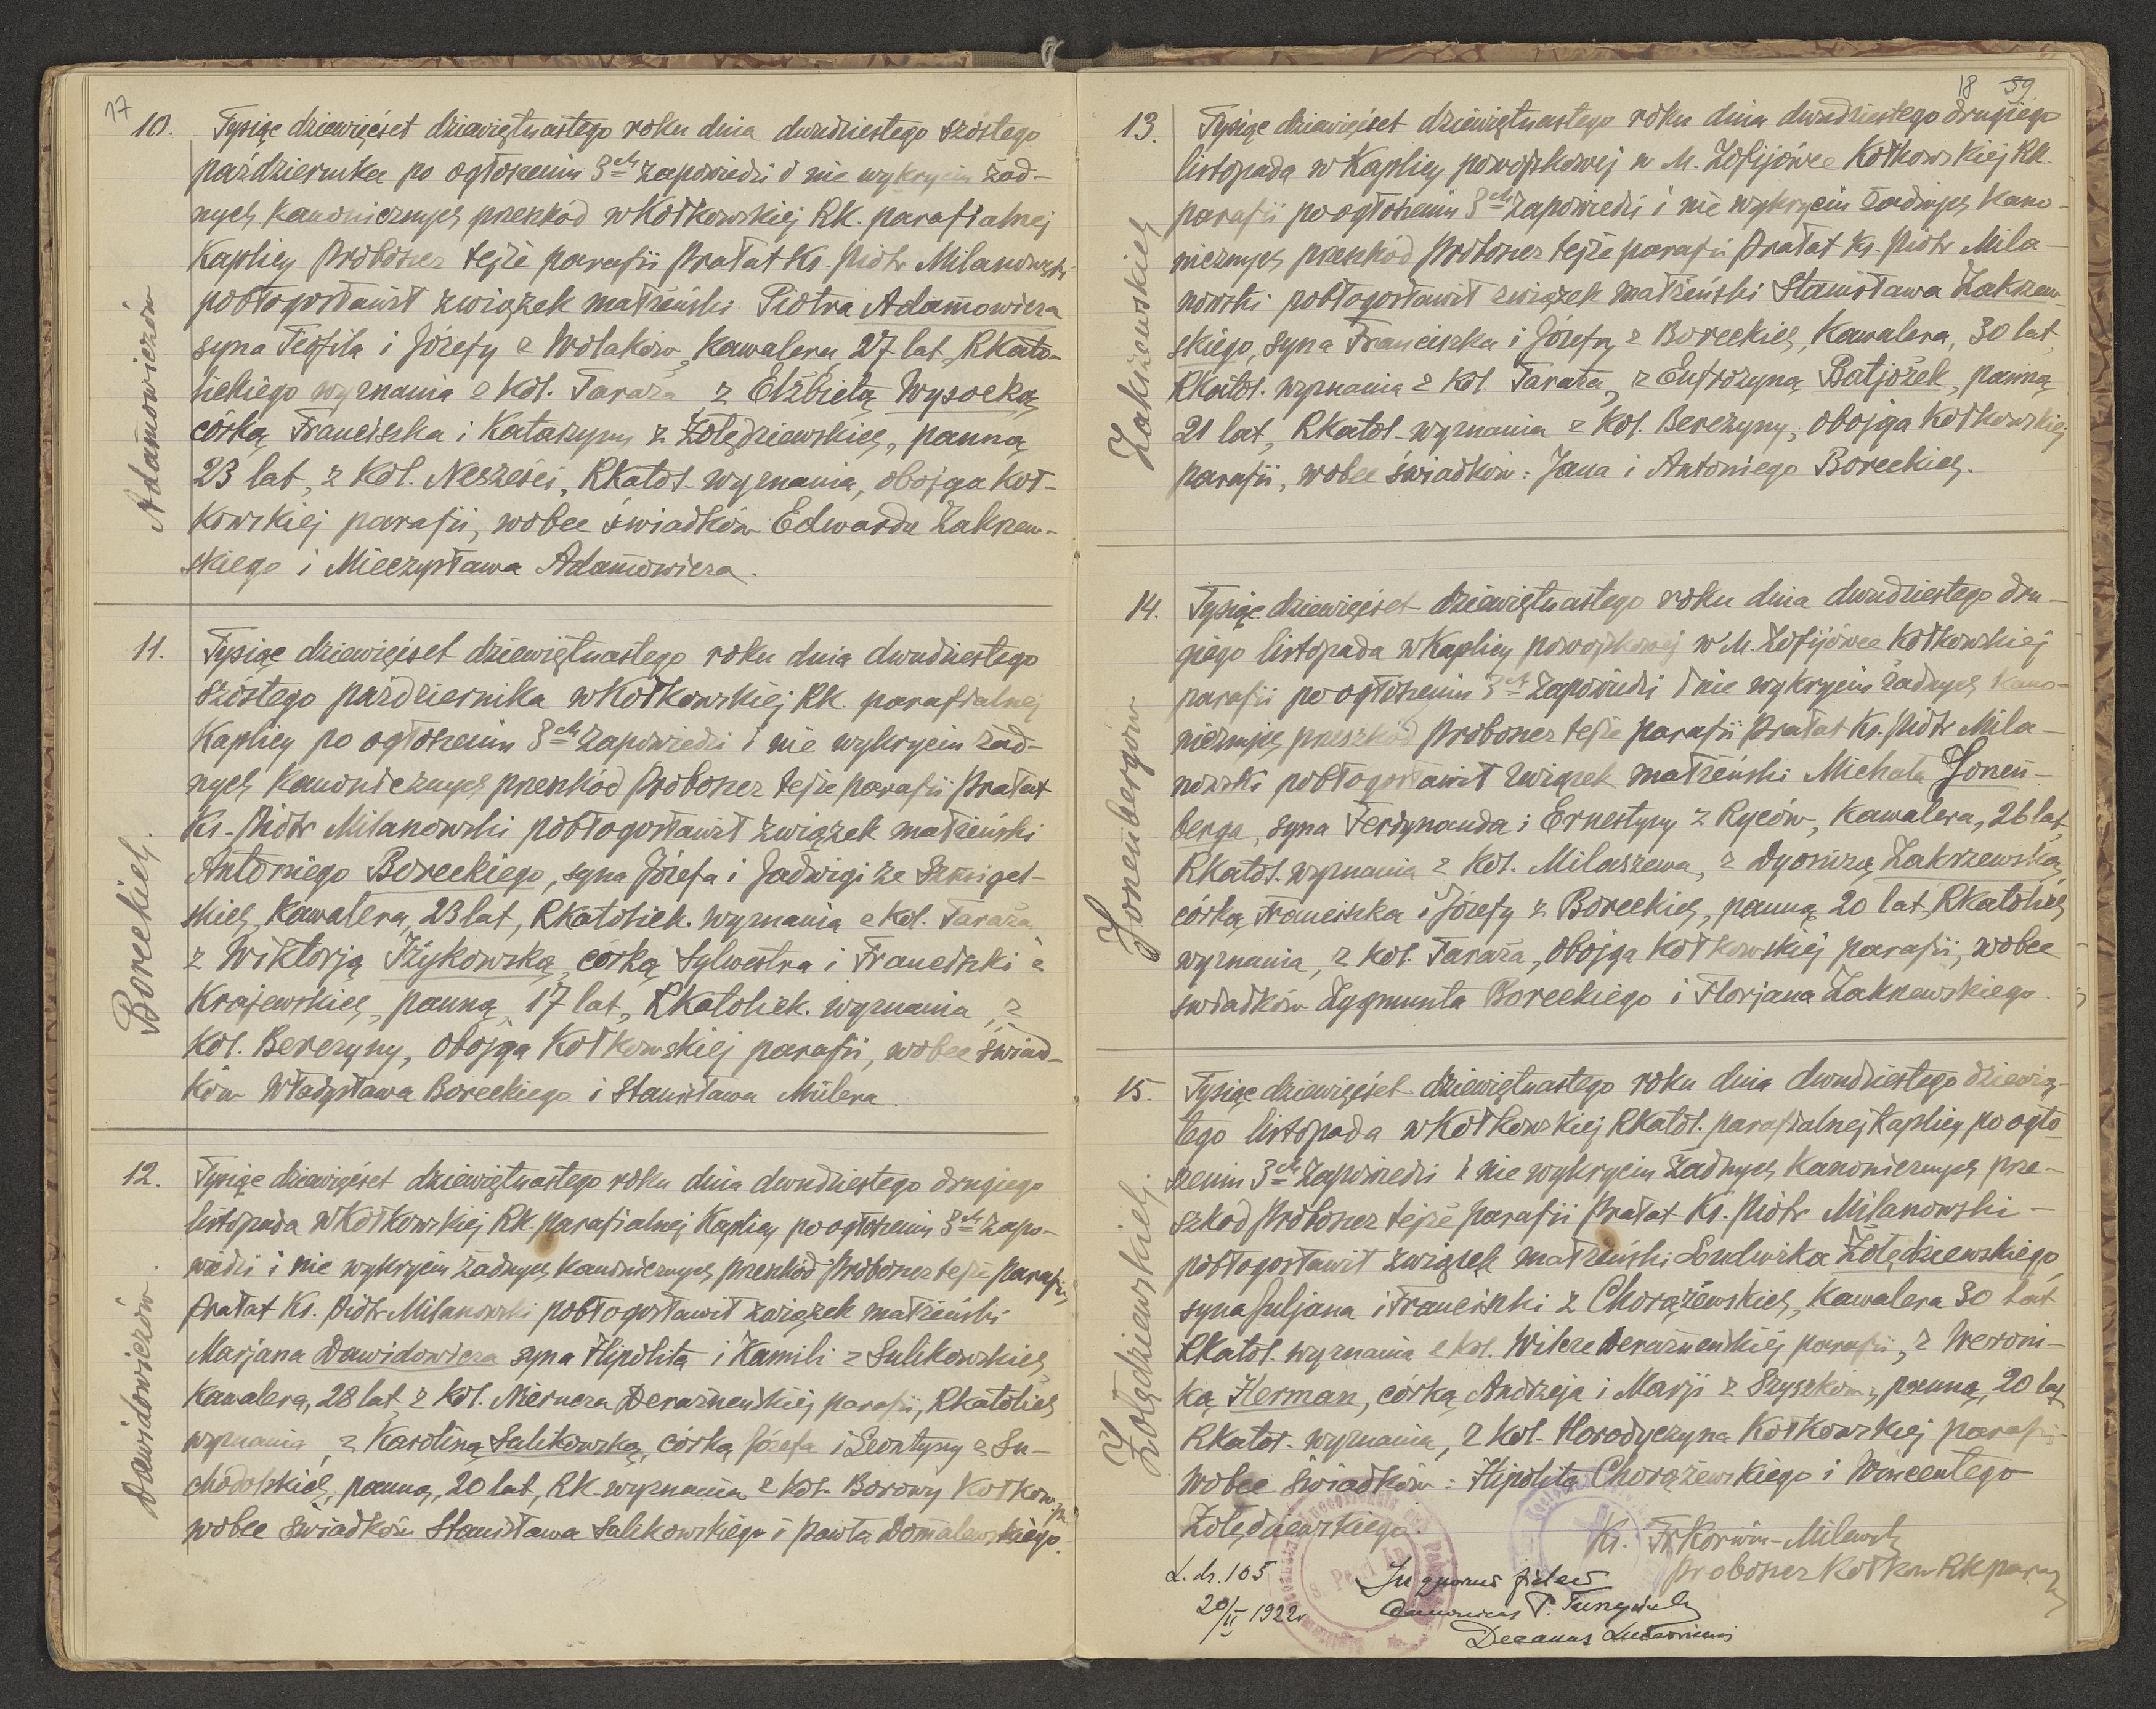 17
10. Tysiąc dziewięćset dziewiętnastego roku dnia dwudziestego szóstego
października po ogłoszeniu 3ch zapowiedzi i nie wykryciu żad-
nych kanonicznych przeszkód w Kołkowskiej RK. parafialnej
Kaplicy Proboszcz tejże parafii Prałat Ks. Piotr Milanowski
pobłogosławił związek małżeński Piotra Adamowicza
syna Teofila i Józefy z Wolaków, Kawalera 27 lat, RKato-
lickiego wyznania z Kol. Taraża z Elżbietą Wysocką,
córką Franciszka i Katarzyny z Żołędziewskich, panną
23 lat, z Kol. Nerześci, RKatol. wyznania, obojga Koł-
kowskiej parafii, wobec świadków Edwarda Zakrzew-
skiego i Mieczysława Adamowicza.
Adamowiczów
11. Tysiąc dziewięćset dziewiętnastego roku dnia dwudziestego
szóstego października w Kołkowskiej RK. parafialnej
Kaplicy po ogłoszeniu 3ch zapowiedzi i nie wykryciu żad-
nych kanonicznych przeszkód Proboszcz tejże parafii Prałat
Ks. Piotr Milanowski pobłogosławił związek małżeński
Antoniego Boreckiego, syna Józefa i Jadwigi ze Szmigel-
skich, Kawalera, 23 lat, RKatolick. wyznania z Kol. Taraża
z Wiktorją Żżykowską, córką Sylwestra i Franciszki z
Krajewskich, panną, 17 lat, RKatolick. wyznania, z
Kol. Berezyny, obojga Kołkowskiej parafii, wobec świad-
ków Władysława Boreckiego i Stanisława Milera.
Boreckich.
12. Tysiąc dziewięćset dziewiętnastego roku dnia dwudziestego drugiego
listopada w Kołkowskiej RK. parafialnej Kaplicy po ogłoszeniu 3ch zapo-
wiedzi i nie wykryciu żadnych kanonicznych przeszkód Proboszcz tejże parafii,
Prałat Ks. Piotr Milanowski pobłogosławił związek małżeński
Marjana Dawidowicza syna Hipolita i Kamili z Sulikowskich,
Kawalera, 28 lat, z Kol. Mierucza Derażneńskiej parafii, RKatolick
wyznania, z Karoliną Salikowską, córką Józefa i Leontyny z Su-
chodolskich, panną, 20 lat, RK. wyznania z Kol. Borowy Kołkow. p.
wobec świadków Stanisława Salikowskiego i Pawła Domalewskiego.
Dawidowiczów.
18 39
13. Tysiąc dziewięćset dziewiętnastego roku dnia dwudziestego drugiego
listopada w Kaplicy powojskowej w M. Zofijówce Kołkowskiej RK.
parafii po ogłoszeniu 3ch zapowiedzi i nie wykryciu żadnych kano-
nicznych przeszkód Proboszcz tejże parafii Prałat Ks. Piotr Mila-
nowski pobłogosławił związek małżeński Stanisława Zakrzew-
skiego, syna Franciszka i Józefy z Boreckich, Kawalera, 30 lat,
RKatol. wyznania z Kol. Taraża, z Eufrozyną Batjożek, panną
21 lat, RKatol. wyznania z Kol. Berezyny, obojga Kołkowskiej
parafii, wobec świadków: Jana i Antoniego Boreckich.
Zakrzewskich
14. Tysiąc dziewięćset dziewiętnastego roku dnia dwudziestego dru-
giego listopada w Kaplicy powojskowej w M. Zofijówce Kołkowskiej
parafii po ogłoszeniu 3ch zapowiedzi i nie wykryciu żadnych kano-
nicznych przeszkód Proboszcz tejże parafii Prałat Ks. Piotr Mila-
nowski pobłogosławił związek małżeński Michała Jonen-
berga, syna Ferdynanda i Ernestyny z Ryców, Kawalera, 26 lat,
RKatol. wyznania z Kol. Milaszewa, z Dyonizą Zakrzewską,
córką Franciszka i Józefy z Boreckich, panną 20 lat, RKatolick
wyznania, z Kol. Taraża, obojga Kołkowskiej parafii, wobec
świadków Zygmunta Boreckiego i Florjana Zakrzewskiego.
Jonenbergów
15. Tysiąc dziewięćset dziewiętnastego roku dnia dwudziestego dziewią-
tego listopada w Kołkowskiej RKatol. parafialnej Kaplicy po ogło-
szeniu 3ch zapowiedzi i nie wykryciu żadnych kanonicznych prze-
szkód Proboszcz tejże parafii Prałat Ks. Piotr Milanowski -
pobłogosławił związek małżeński Ludwika Żołędziewskiego,
syna Juljana i Franciszki z Chorążewskich, Kawalera 30 lat
RKatol. wyznania z Kol. Wilcze Derażneńskiej parafii, z Weroni-
ką Herman, córką Andrzeja i Marji z Szyszków, panną, 20 lat
RKatol. wyznania, z Kol. Horodyczyna Kołkowskiej parafii
wobec świadków: Hipolita Chorążewskiego i Wincentego
Żołędziewskiego.
Żołędziewskich.
Ks. Fr Korwin-Milewski
proboszcz Kołkow RK paraf
L. dz. 105
20/II 1922r
Decanus